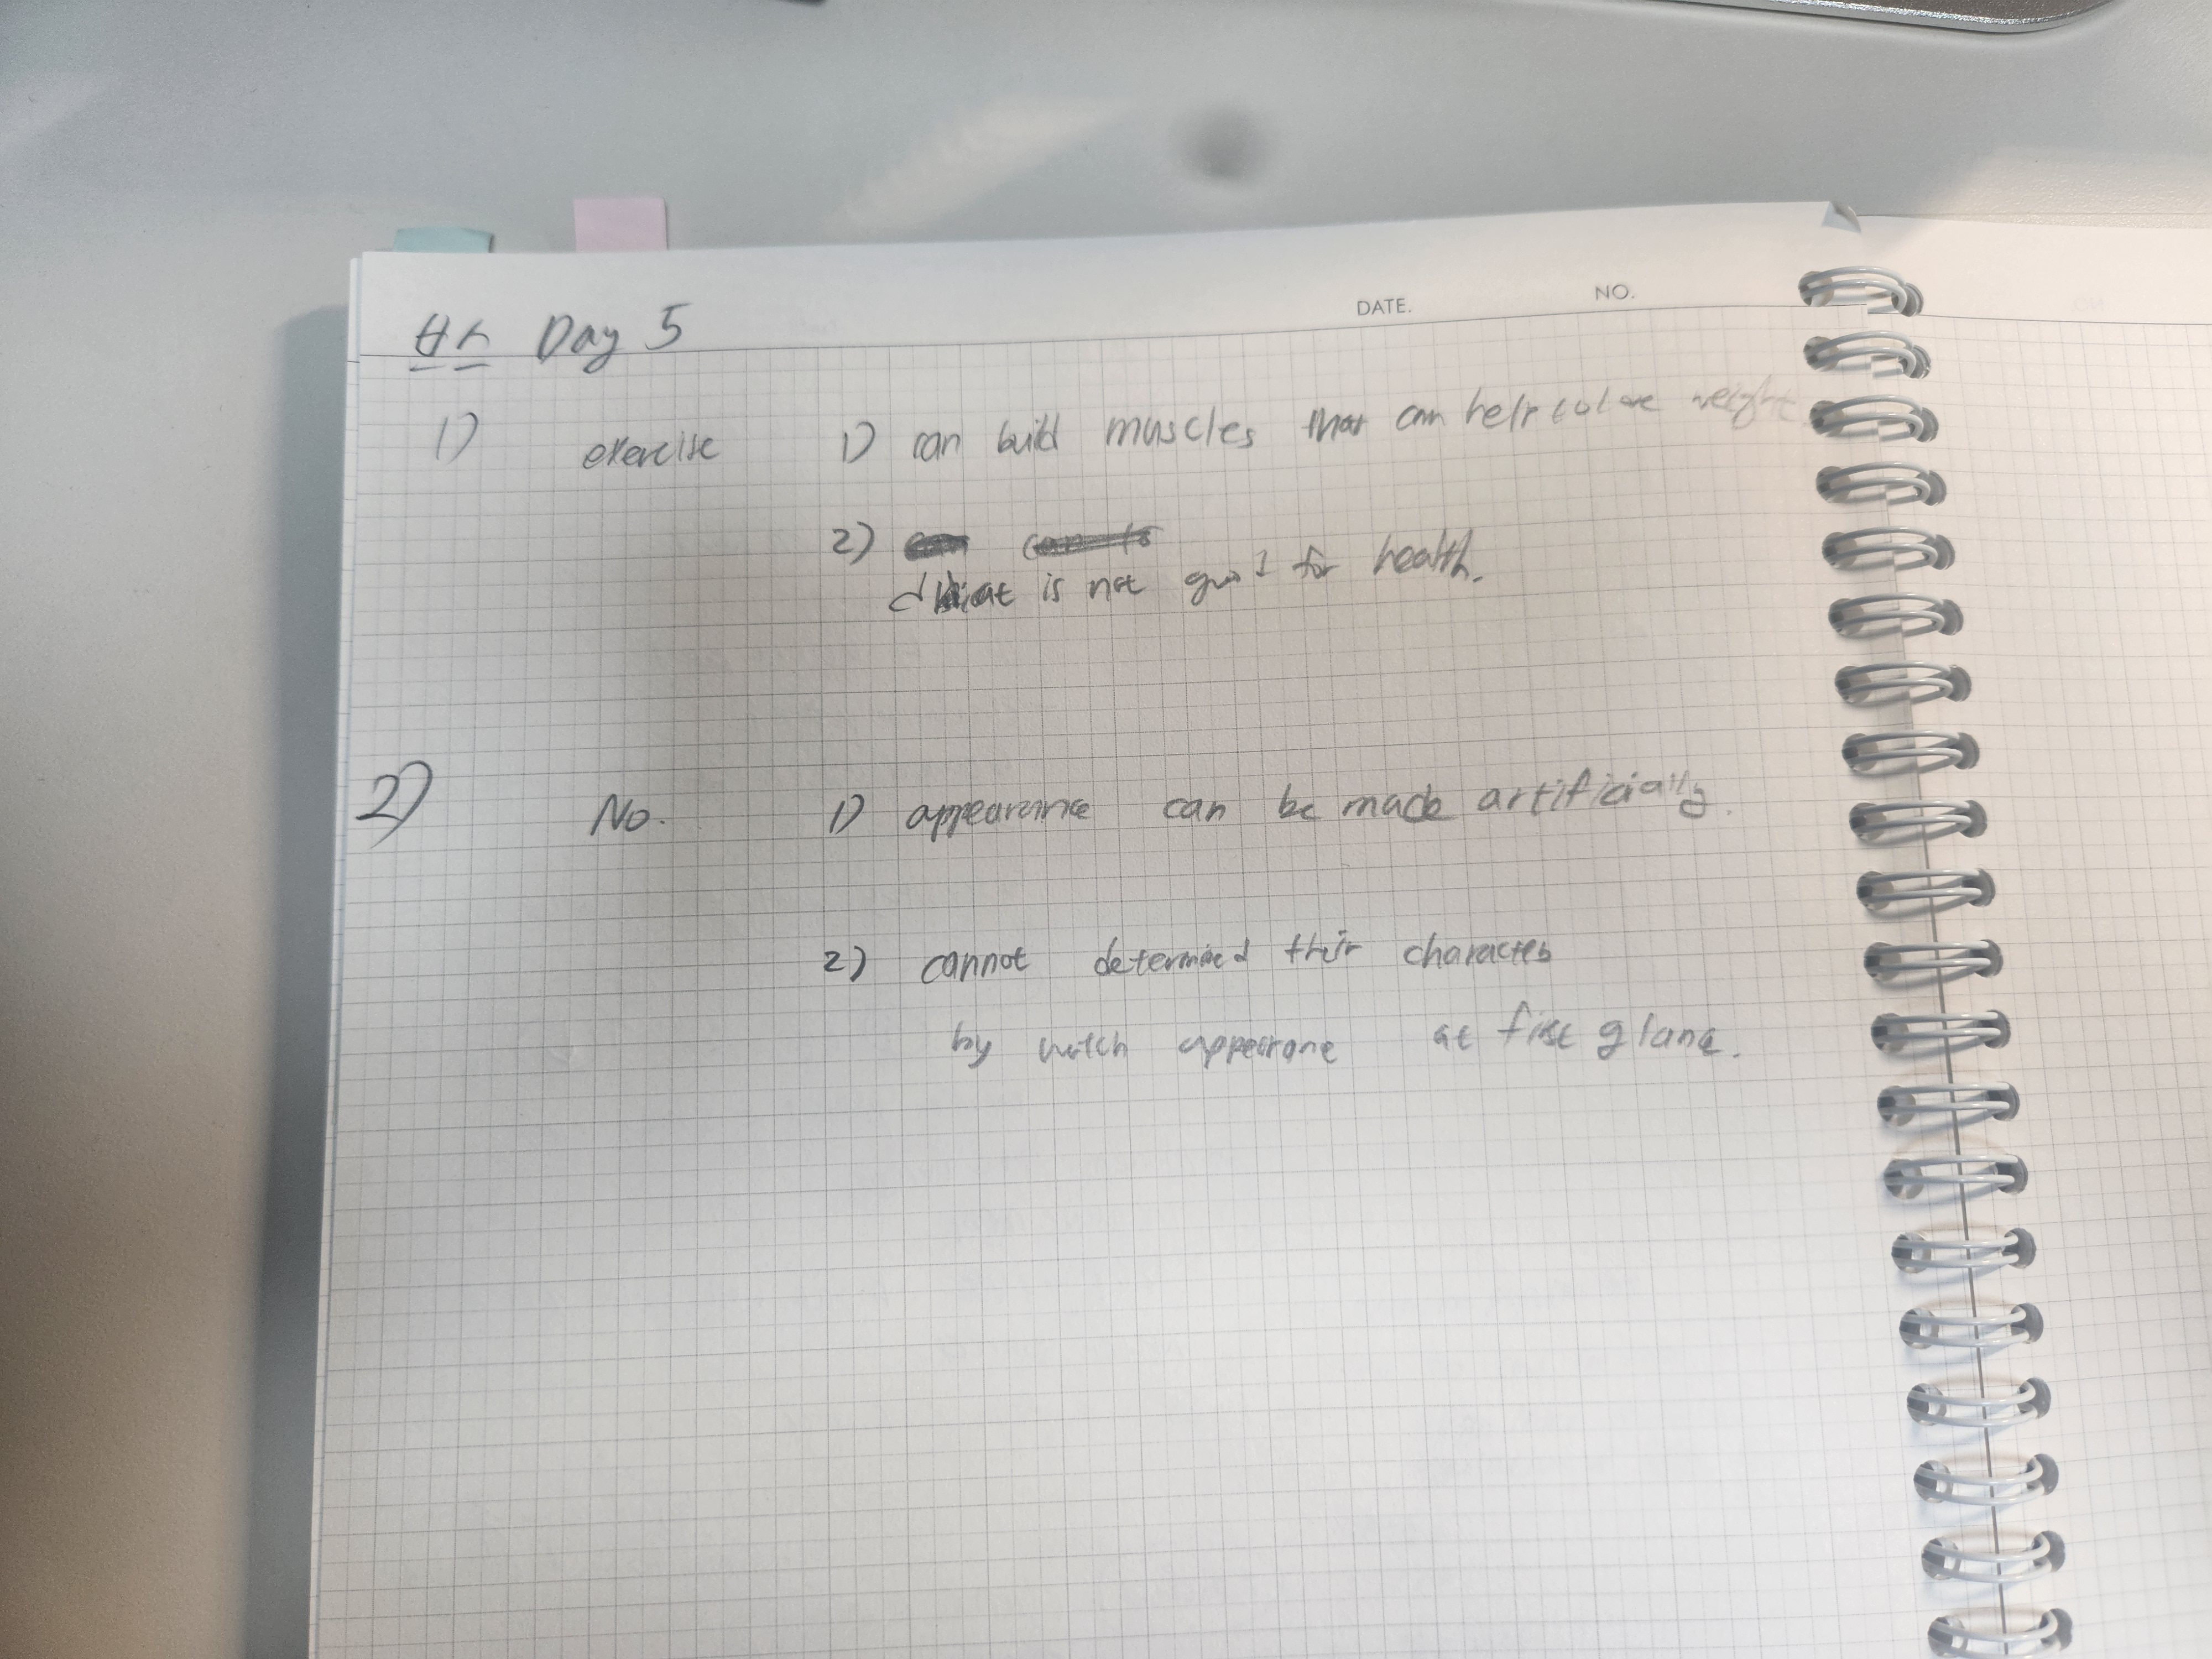 DATE. NO.
Day 5
1) exercise 1) can build muscles that can help weight
2)
is not good for health.
2) No. 1) appearance can be made artificially.
2) cannot determined their character
by watch appearane at first glance.